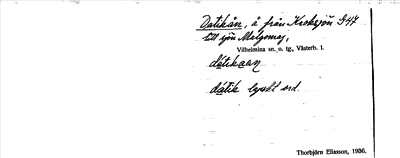 Datikån, å från Kroksjön 347
till sjön Malgomaj,
Vilhelmina sn. o. tg., Västerb. l.
dátikaan
dátik lapskt ord.
Thorbjörn Eliasson, 1936.